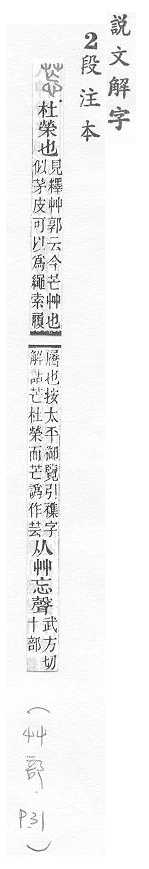 說文解字
2段注本
杜榮也
見釋艸郭云今芒艸也
似茅皮可以爲繩索履
屩也按太平御覽引襍字
解詁芒杜榮而芒譌作芸
从艸忘聲
武方切
十部
(艸部.
P31)